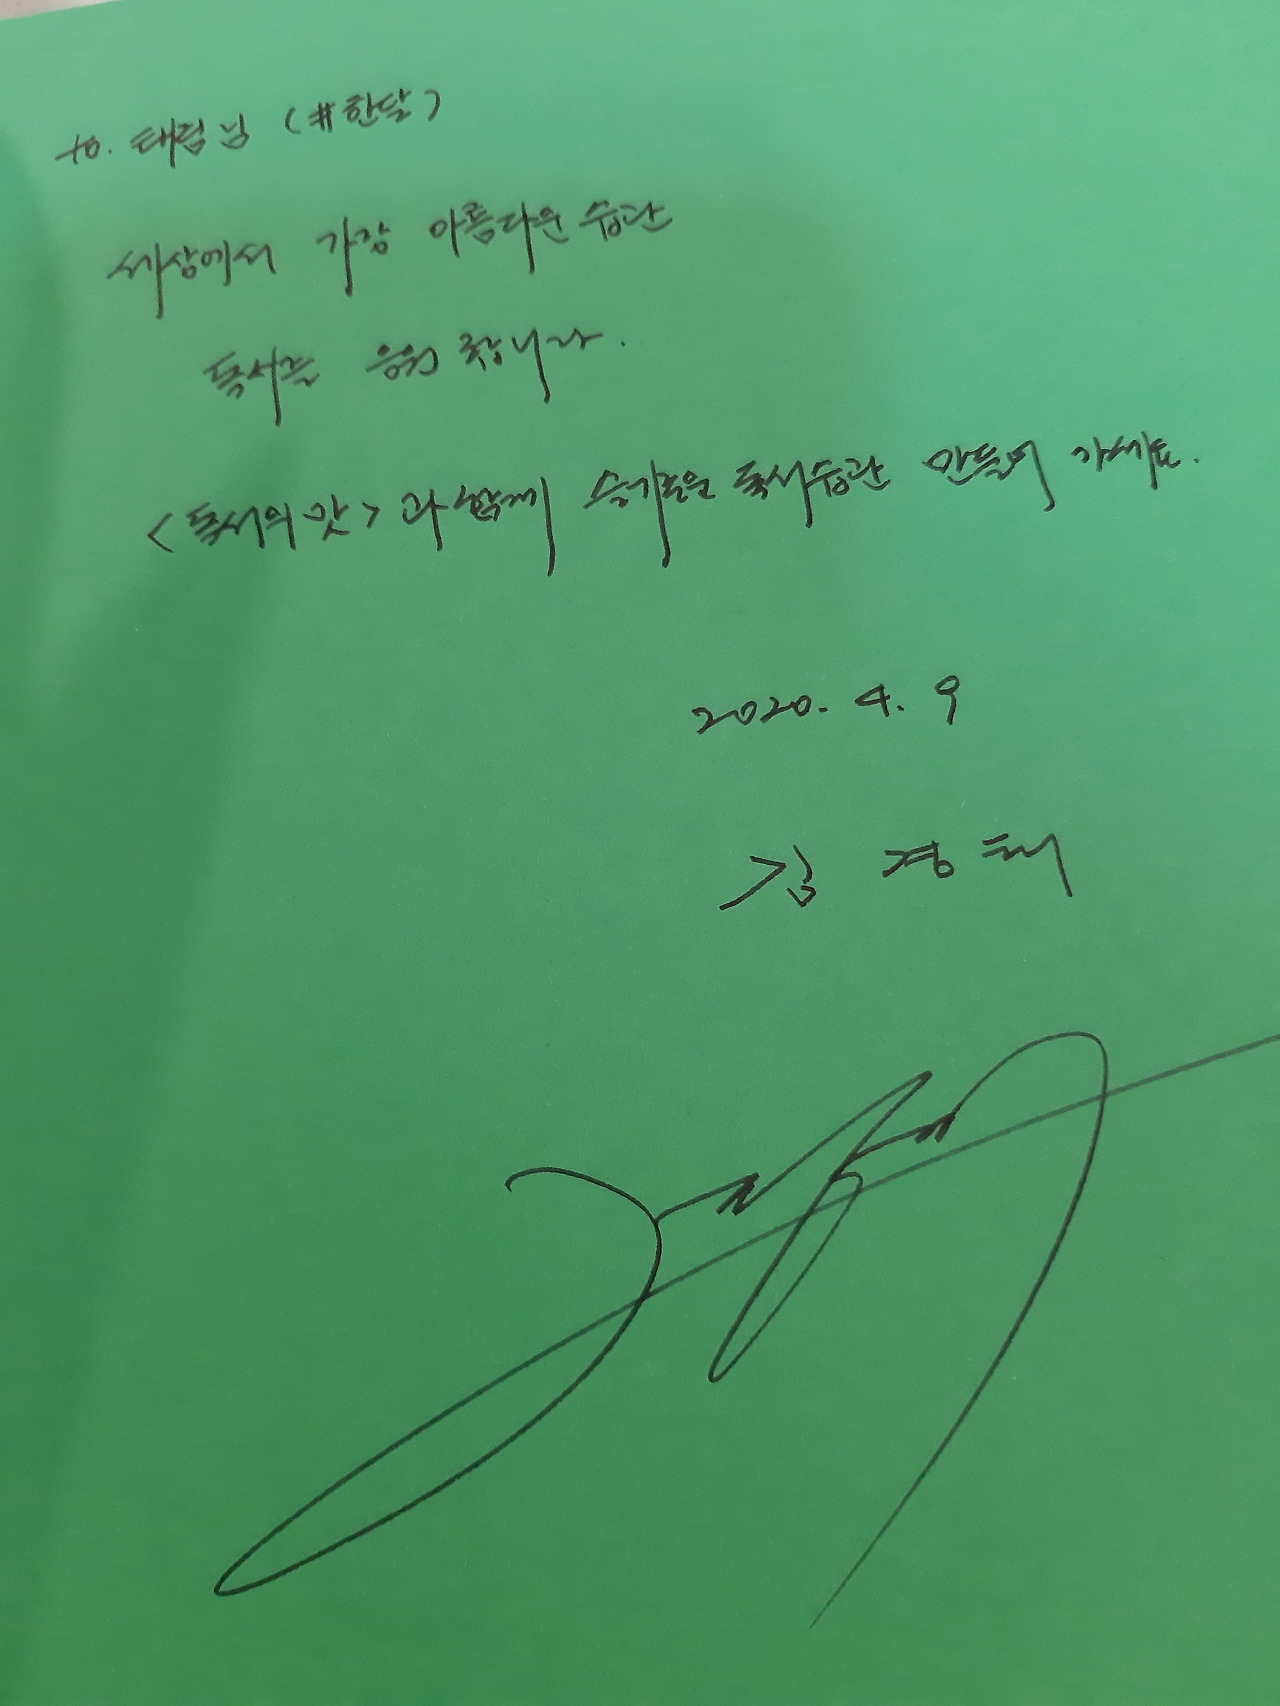 to. 태림 님 (#한달)
세상에서 가장 아름다운 습관
독서를 응원합니다.
<독서의 맛>과 함께 슬기로운 독서습관 만들어 가세요.
2020. 4. 9
김 경 태